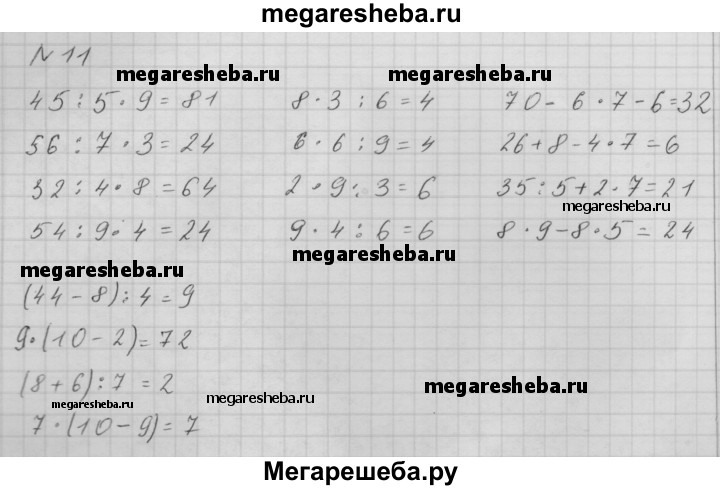 megaresheba.ru
N 11
megaresheba.ru megaresheba.ru
45 : 5 · 9 = 81 8 · 3 : 6 = 4 70 - 6 · 7 - 6 = 32
56 : 7 · 3 = 24 6 · 6 : 9 = 4 26 + 8 - 4 · 7 = 6
32 : 4 · 8 = 64 2 · 9 : 3 = 6 35 : 5 + 2 · 7 = 21
megaresheba.ru
54 : 9 · 4 = 24 9 · 4 : 6 = 6 8 · 9 - 8 · 5 = 24
megaresheba.ru megaresheba.ru
(44 - 8) : 4 = 9
9 · (10 - 2) = 72
(8 + 6) : 7 = 2 megaresheba.ru
megaresheba.ru megaresheba.ru
7 · (10 - 9) = 7
Мегарешеба.ру